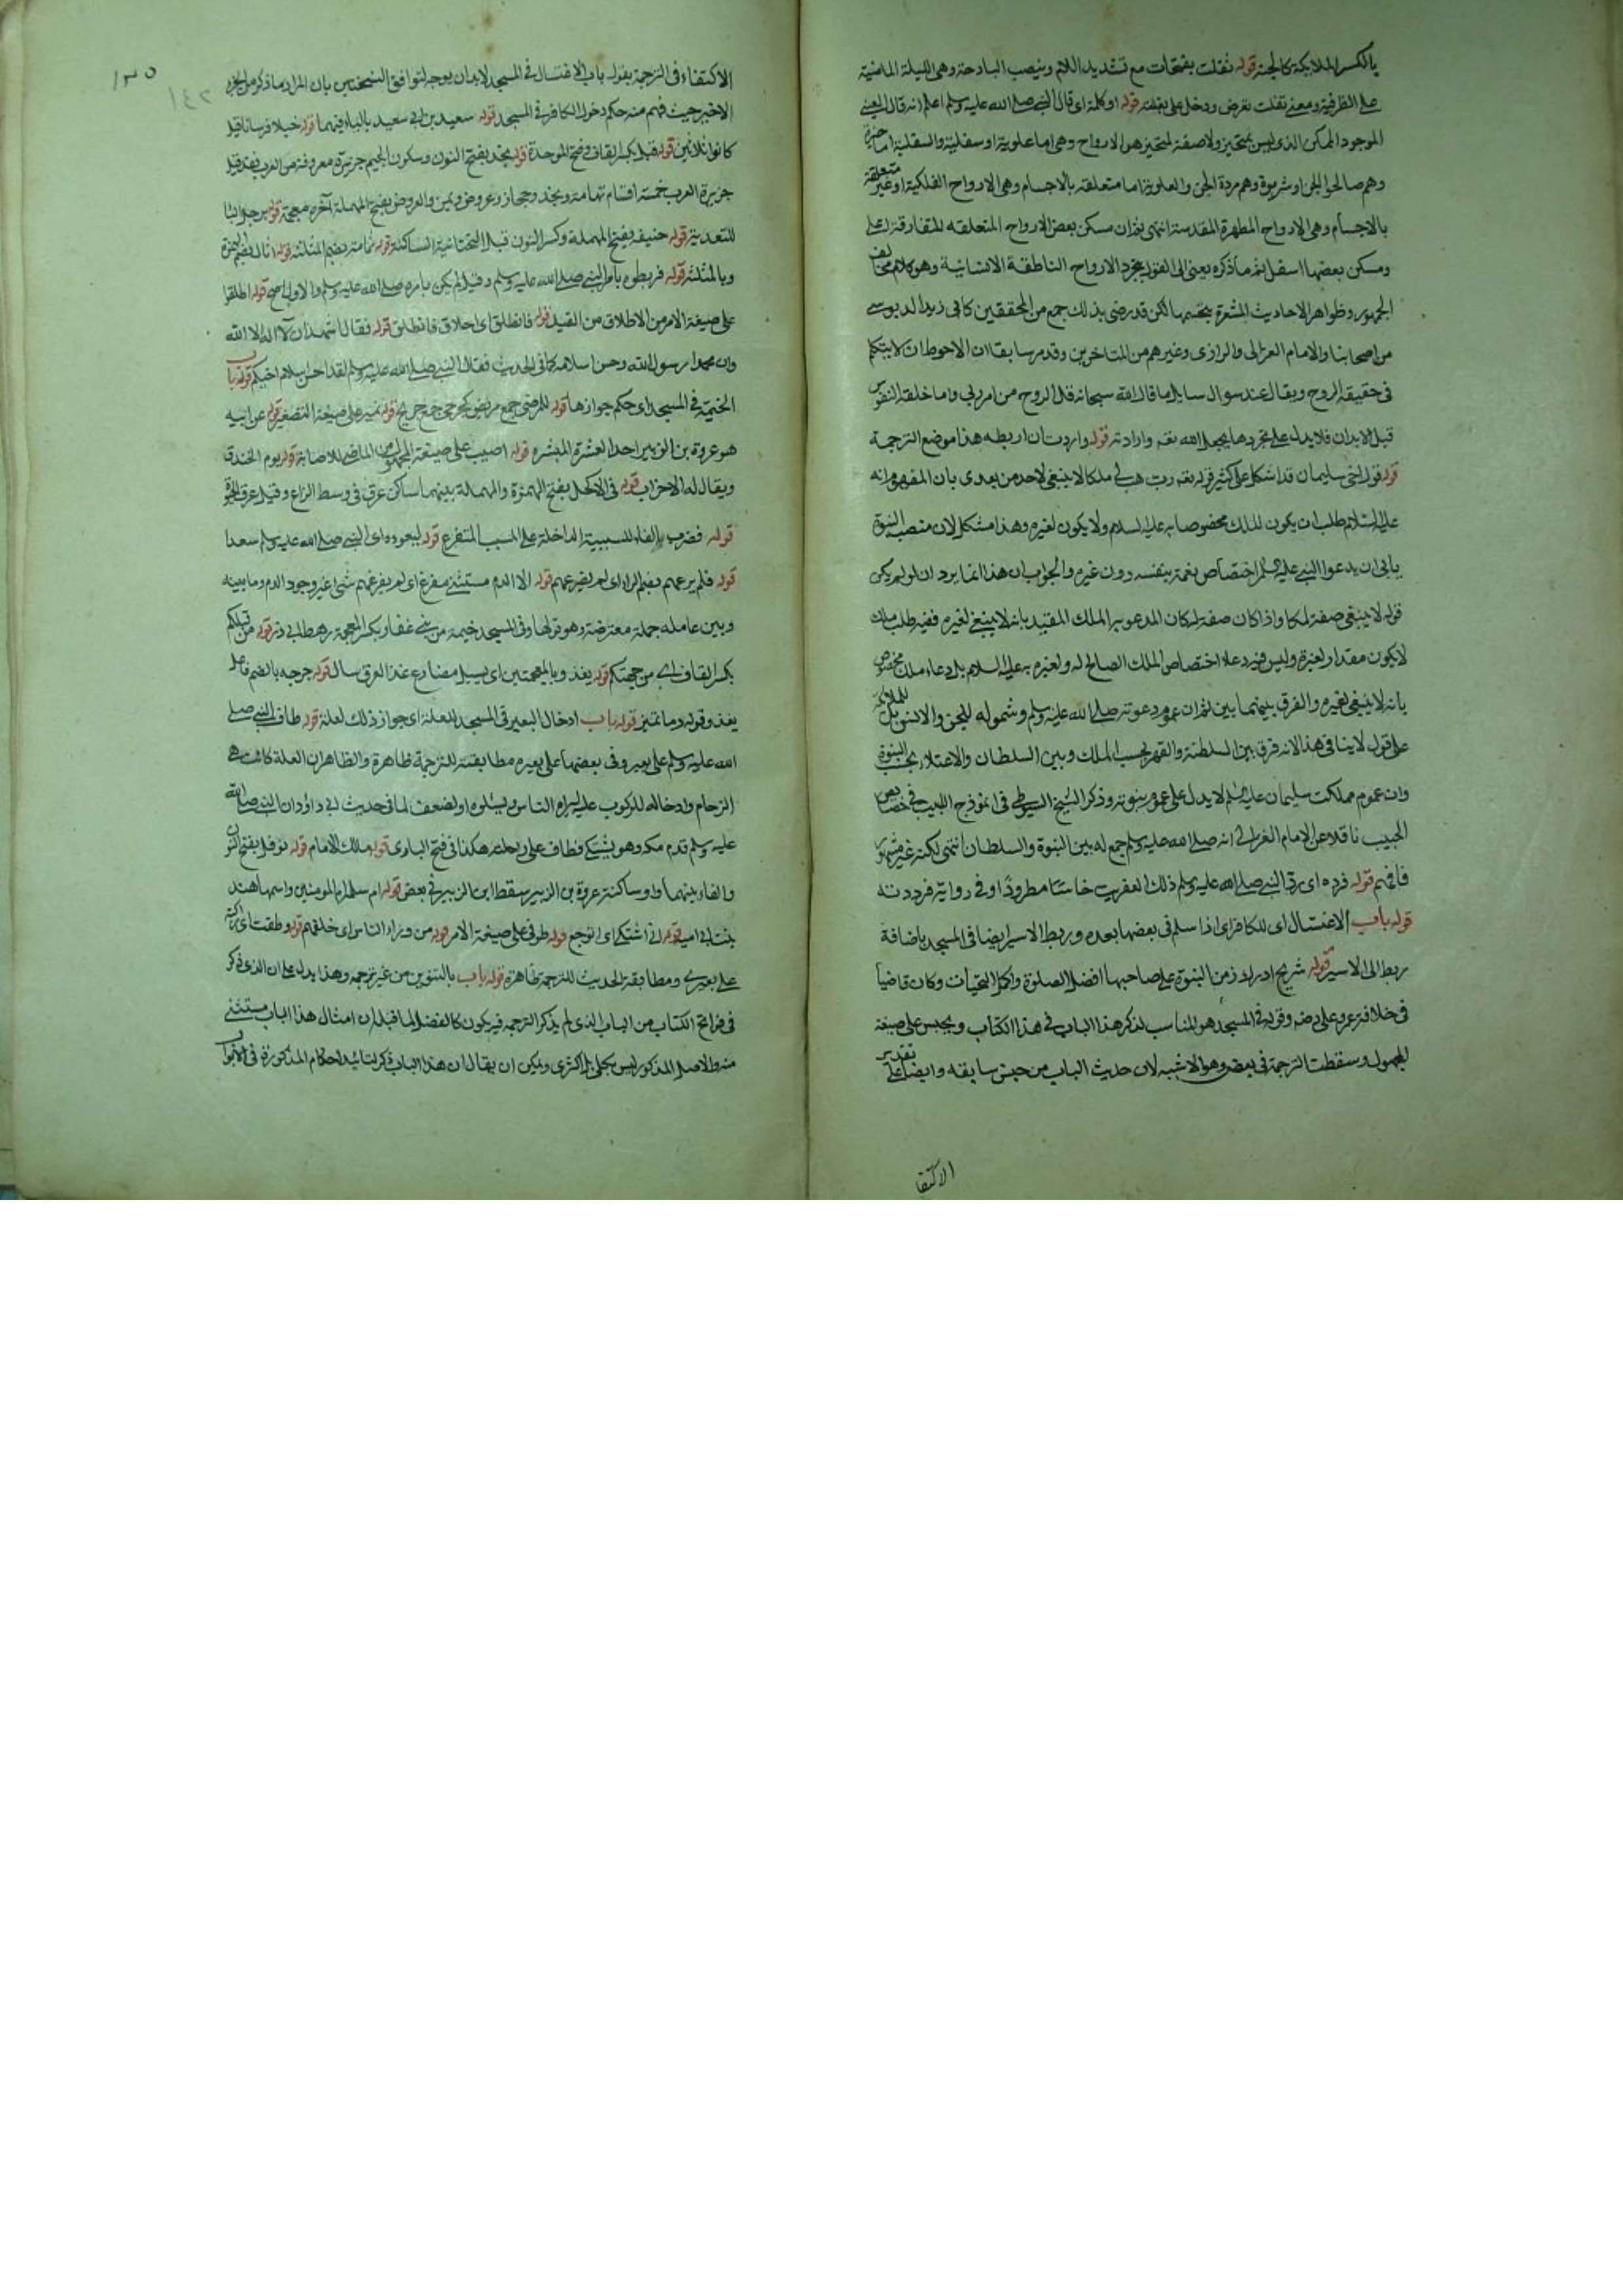 بالكسر الملايكة كالجنة قوله تفلت بفتحات مع تشديد اللام وبنصب البارحة وهى الليلة الماضية
على الظرفية ومعنى تفلت تعرض ودخل على بغتة قوله او كلمة اى قال النبى صلى الله عليه وسلم اعلم انه قال العينى
الموجود الممكن الذى ليس بمتحيز ولا صفة لمتحيز هو الارواح وهى اما علوية او سفلية والسفلية اما خيرة
وهم صالحوا الجن او شريرة وهم مردة الجن والعلوية اما متعلقة بالاجسام وهى الارواح الفلكية او غير متعلقة
بالاجسام وهى الارواح المطهرة المقدسة انتهى ثم ان مسكن بعض الارواح المتعلقه للمفارقة اعلى
ومسكن بعضها اسفل ثم ما ذكره يعنى الى القول بتجرد الارواح الناطقة الانسانية وهو كلام مخالف
الجمهور وظواهر الاحاديث المشعرة بتجسمها لكن قد رضى بذلك جمع من المحققين كابى زيد الدبوسى
من اصحابنا والامام الغزالى والرازى وغيرهم من المتاخرين وقد مر سابقا ان الاحوط ان لا يتكلم
فى حقيقة الروح ويقال عند سوال سايل ما قال الله سبحانه قل الروح من امر ربى واما خلقة النفوس
قبل الابدان فلا يدل على تجردها بجعل الله تعم وارادته قوله واردت ان اربطه هذا موضع الترجمة
قوله قول اخى سليمان قد اشكل على كثير قوله تعم رب هب لى ملكا لا ينبغى لاحد من بعدى بان المفهوم انه
عليه السلام طلب ان يكون الملك مخصوصا به عليه السلام ولا يكون لغيره وهذا مشكل لان منصب النبوة
يابى ان يدعوا النبى عليه السلم اختصاص نعمة بنفسه دون غيره والجواب ان هذا انما يرد ان لو لم يكن
قوله لا ينبغى صفة لملكا واذا كان صفة له كان المدعو به الملك المقيد بانه لا ينبغى لغيره ففيه طلب ملك
لا يكون مقدار لغيره وليس فيه دعاء اختصاص الملك الصالح له ولغيره به عليه السلام بل دعاء ملك مخصوص
بانه لا ينبغى لغيره والفرق بينهما بين ثم ان عموم دعوته صلى الله عليه وسلم وشموله للجن والانس بل للملائكة
على قول لا ينافى هذا لانه فرق بين السلطنة والقهر بحسب الملك وبين السلطان والاعتلاء بحسب النبوة
وان عموم مملكت سليمان عليه السلم لا يدل على عموم نبوته وذكر الشيخ السيوطى فى انموذج اللبيب فى خصايص
الحبيب ناقلا عن الامام الغزالى انه صلى الله عليه وسلم جمع له بين النبوة والسلطان انتهى لكنه غير مشهور
فافهم قوله فرده اى رد النبى صلى الله عليه وسلم ذلك العفريت خاسئا مطرودا وفى رواية فرددته
قوله باب الاغتسال اى للكافر اى اذا سلم فى بعضها بعده وربط الاسير ايضا فى المسجد باضافة
ربط الى الاسير قوله شريح ادرك زمن النبوة على صاحبها افضل الصلوة واكمل التحيات وكان قاضيا
فى خلافة عمر وعلى رضه وقوله فى المسجد هو المناسب لذكر هذا الباب فى هذا الكتاب ويحبس على صيغة
المجهول وسقطت الترجمة فى بعض وهو الاشبه لان حديث الباب من جنس سابقه وايضا على تقدير
الاكتفا
١٣٥
١٤٢
الاكتفاء فى الترجمة بقوله باب الاغتسال فى المسجد لا بد ان يوجه لتوافق النسختين بان المراد ما ذكر من الجزء
الاخير حيث فهم منه حكم دخول الكافر فى المسجد قوله سعيد بن ابى سعيد بالياء فيهما قوله خيلا فرسانا قيل
كانوا ثلاثين قوله قبل بكسر القاف وفتح الموحدة قوله نجد بفتح النون وسكون الجيم جزيرة معروفة من العرب فقد قيل
جزيرة العرب خمسة اقسام تهامة ونجد وحجاز وعروض ويمن والعروض بفتح المهملة آخره معجمة قوله برجل الباء
للتعدية قوله حنيفه بفتح المهملة وكسر النون قبل التحتانية الساكنة قوله ثمامة بضم المثلثه قوله اثال بضم الهمزة
وبالمثلثة قوله فربطوه بامر النبى صلى الله عليه وسلم وقيل لم يكن بامره صلى الله عليه وسلم والاول اصح قوله اطلقوا
على صيغة الامر من الاطلاق من القيد قوله فانطلق اى اطلاق فانطلق قوله فقال اشهد ان لا اله الا الله
وان محمدا رسول الله وحسن اسلامه كما فى الحديث فقال النبى صلى الله عليه وسلم لقد احسن اسلام اخيكم قوله باب
الخيمة فى المسجد اى حكم جوازها قوله للمرضى جمع مريض كجرحى جمع جريح قوله نمير على صيغة التصغير قوله عن ابيه
هو عروة بن الزبير احد العشرة المبشره قوله اصيب على صيغة المجهول من الماضى للاصابة قوله يوم الخندق
ويقال له الاحزاب قوله فى الاكحل بفتح الهمزة والمهملة بينهما ساكن عرق فى وسط الذراع وقيل عرق الحيوة
قوله فضرب الفاء للسببية الداخلة على المسبب المتفرع قوله ليعوده اى النبى صلى الله عليه وسلم سعدا
قوله فلم يرعهم بضم الراء اى لم يفزعهم قوله الا الدم مستثنى مفرغ اى لم يفزعهم شئ غير وجود الدم وما بينه
وبين عامله جملة معترضة وهو قولها وفى المسجد خيمة من بنى غفار بكسر المعجمة رهط ابى ذر قوله من قبلكم
بكسر القاف اى من جهتكم قوله يغذ وبالمعجمتين اى يسيل مضارع غذ العرق سال قوله جرحه بالضم فاعل
يغذ وقوله دما تمييز قوله باب ادخال البعير فى المسجد للعلة اى جواز ذلك لعلة قوله طاف النبى صلى
الله عليه وسلم على بعير وفى بعضها على بعيره مطابقته للترجمة ظاهرة والظاهر ان العلة كانت هى
الزحام وادخاله للركوب عليه ليراه الناس ويسئلوه او لضعف لما فى حديث ابى داؤد ان النبى صلى الله
عليه وسلم قدم مكه وهو يشتكى فطاف على راحلته هكذا فى فتح البارى قوله مالك الامام قوله نوفل بفتح النون
والفاء بينهما واو ساكنة عروة بن الزبير سقط ابن الزبير فى بعض قوله ام سلمه ام المومنين واسمها هند
بنت ابى امية قوله انى اشتكى اى اتوجع قوله طوفى على صيغة الامر قوله من وراء الناس اى خلفهم قوله وطفت اى راكبة
على بعيرى ومطابقة الحديث للترجمة ظاهرة قوله باب بالتنوين من غير ترجمه وهذا يدل على ان الذى ذكر
فى فواتح الكتاب من الباب الذى لم يذكر الترجمه فيه يكون كالفصل لما قبله ان امثال هذا الباب مستثنى
منه والاصل المذكور ليس بكلى بل اكثرى ويمكن ان يقال ان هذا الباب ذكر لتائيد احكام المذكورة فى الابواب